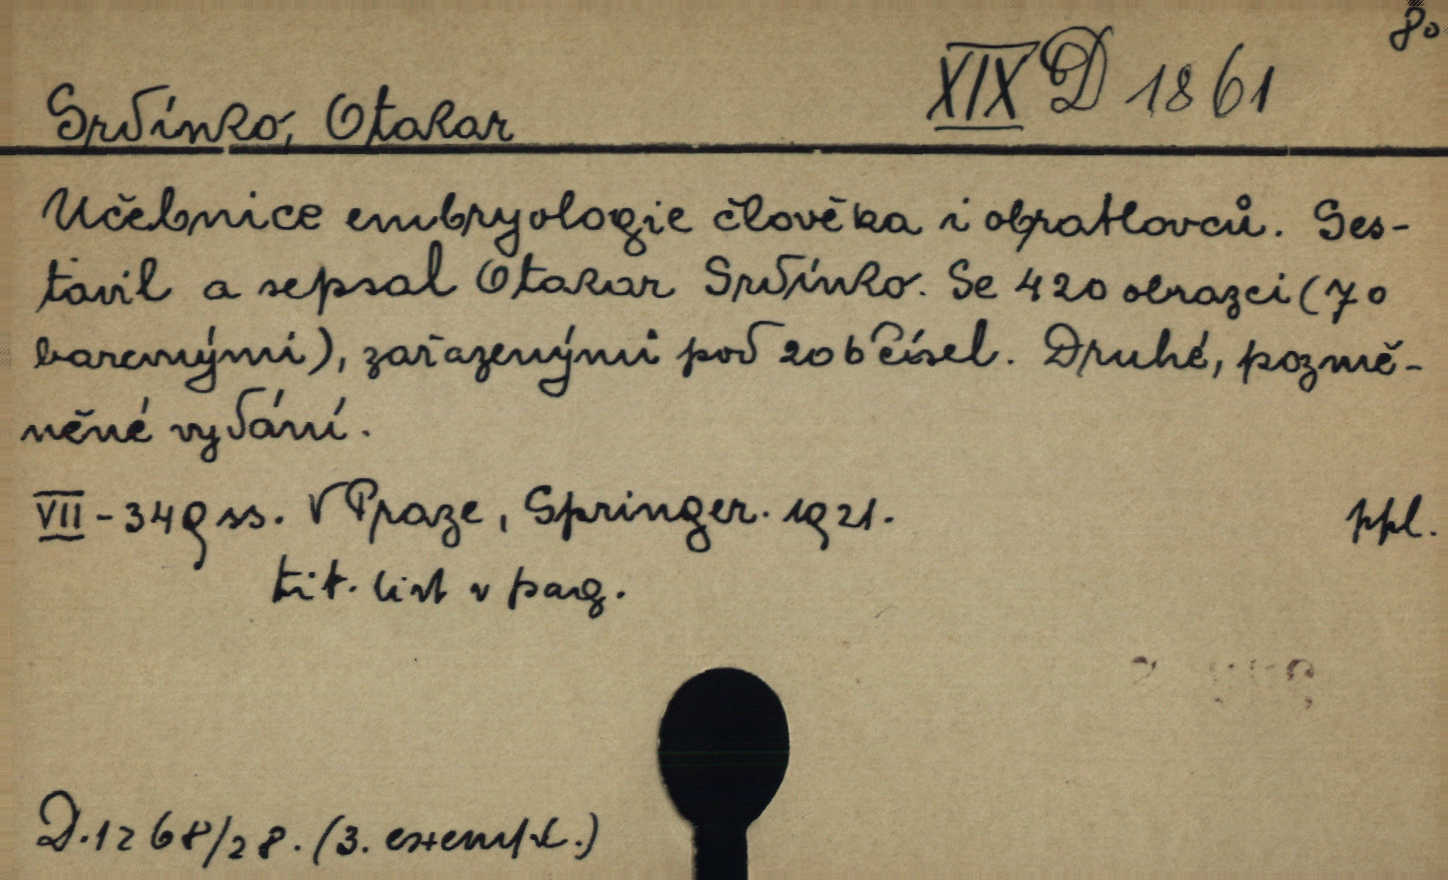 8°
XIX D 1861
Srdínko, Otakar
Učebnice embryologie člověka i obratlovců. Ses-
tavil a sepsal Otakar Srdínko. Se 420 obrazci (70
barevnými), zařazenými pod 206 čísel. Druhé, pozmě-
něné vydání.
VII - 349 ss. V Praze, Springer. 1921. ppl.
tit. list v parg.
D. 1268/28. (3. exempl.)